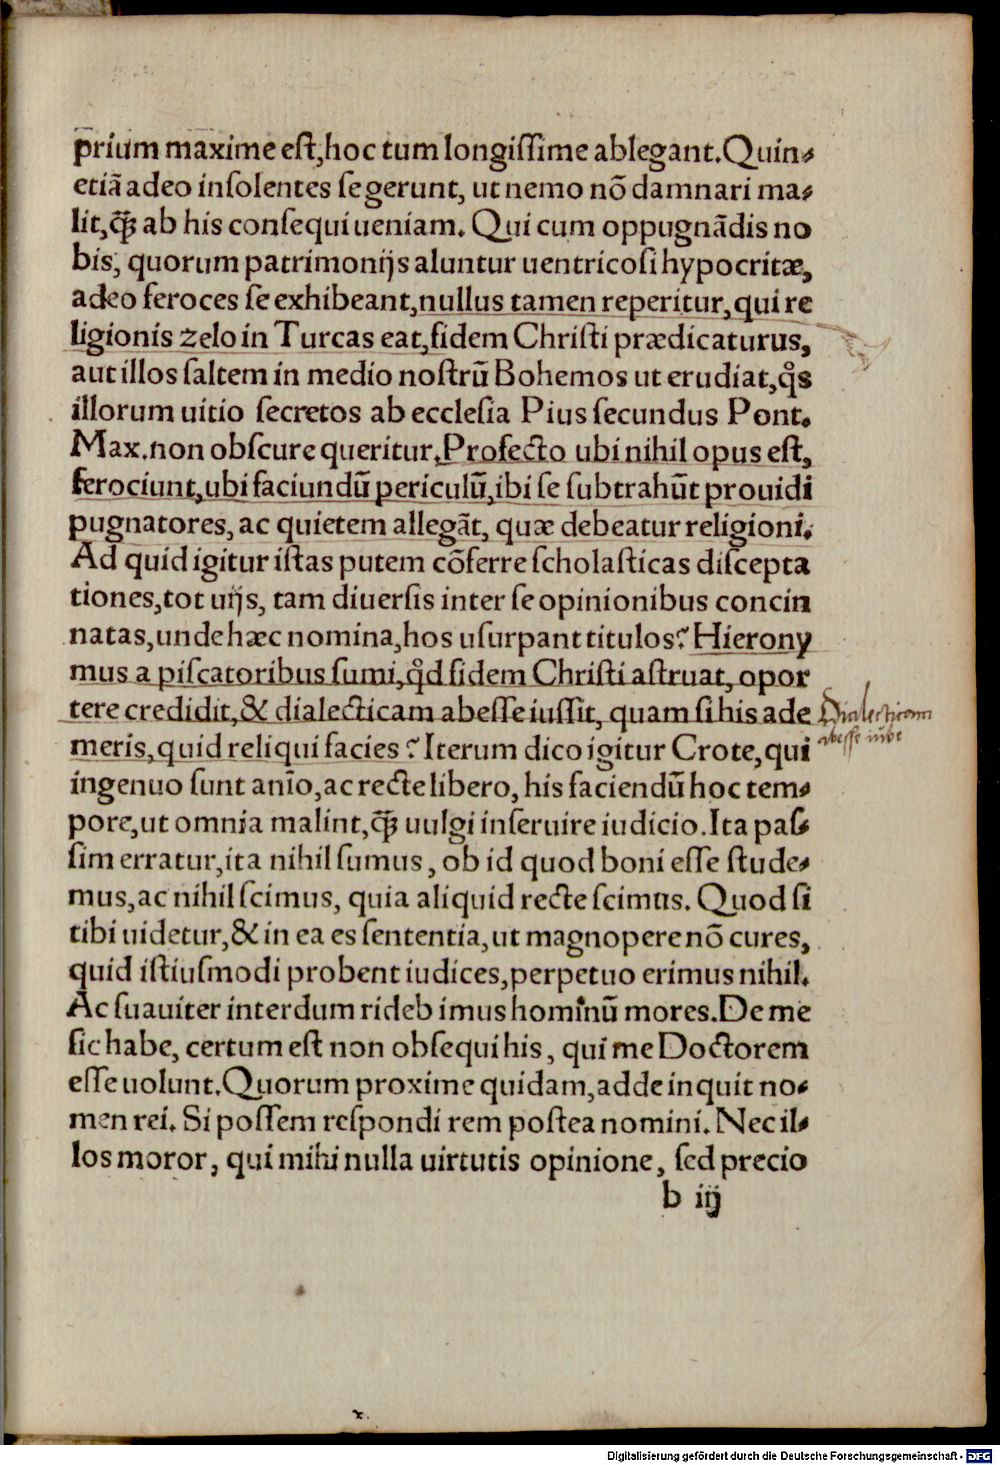 prium maxime est, hoc tum longissime ablegant. Quin-
etiã adeo insolentes se gerunt, ut nemo nõ damnari ma-
lit, q̃ꝫ ab his consequi ueniam. Qui cum oppugnãdis no
bis, quorum patrimonijs aluntur uentricosi hypocritæ,
adeo feroces se exhibeant, nullus tamen reperitur, qui re
ligionis zelo in Turcas eat, fidem Christi prædicaturus,
aut illos saltem in medio nostrũ Bohemos ut erudiat, q̊s
illorum uitio secretos ab ecclesia Pius secundus Pont.
Max. non obscure queritur. Profecto ubi nihil opus est,
ferociunt, ubi faciundũ periculũ, ibi se subtrahũt prouidi
pugnatores, ac quietem allegãt, quæ debeatur religioni.
Ad quid igitur istas putem cõferre scholasticas discepta
tiones, tot uijs, tam diuersis inter se opinionibus concin
natas, unde hæc nomina, hos usurpant titulos? Hierony
mus a piscatoribus sumi, q̊d fidem Christi astruat, opor
tere credidit, & dialecticam abesse iussit, quam si his ade
Dialecticam
meris, quid reliqui facies? Iterum dico igitur Crote, qui
abesse iube
ingenuo sunt anīo, ac recte libero, his faciendũ hoc tem-
pore, ut omnia malint, q̃ꝫ uulgi inseruire iudicio. Ita pas-
sim erratur, ita nihil sumus, ob id quod boni esse stude-
mus, ac nihil scimus, quia aliquid recte scimus. Quod si
tibi uidetur, & in ea es sententia, ut magnopere nõ cures,
quid istiusmodi probent iudices, perpetuo erimus nihil.
Ac suauiter interdum rideb imus hominũ mores. De me
sic habe, certum est non obsequi his, qui me Doctorem
esse uolunt. Quorum proxime quidam, adde inquit no-
men rei. Si possem respondi rem postea nomini. Nec il-
los moror, qui mihi nulla uirtutis opinione, sed precio
b iij
Digitalisierung gefördert durch die Deutsche Forschungsgemeinschaft - DFG